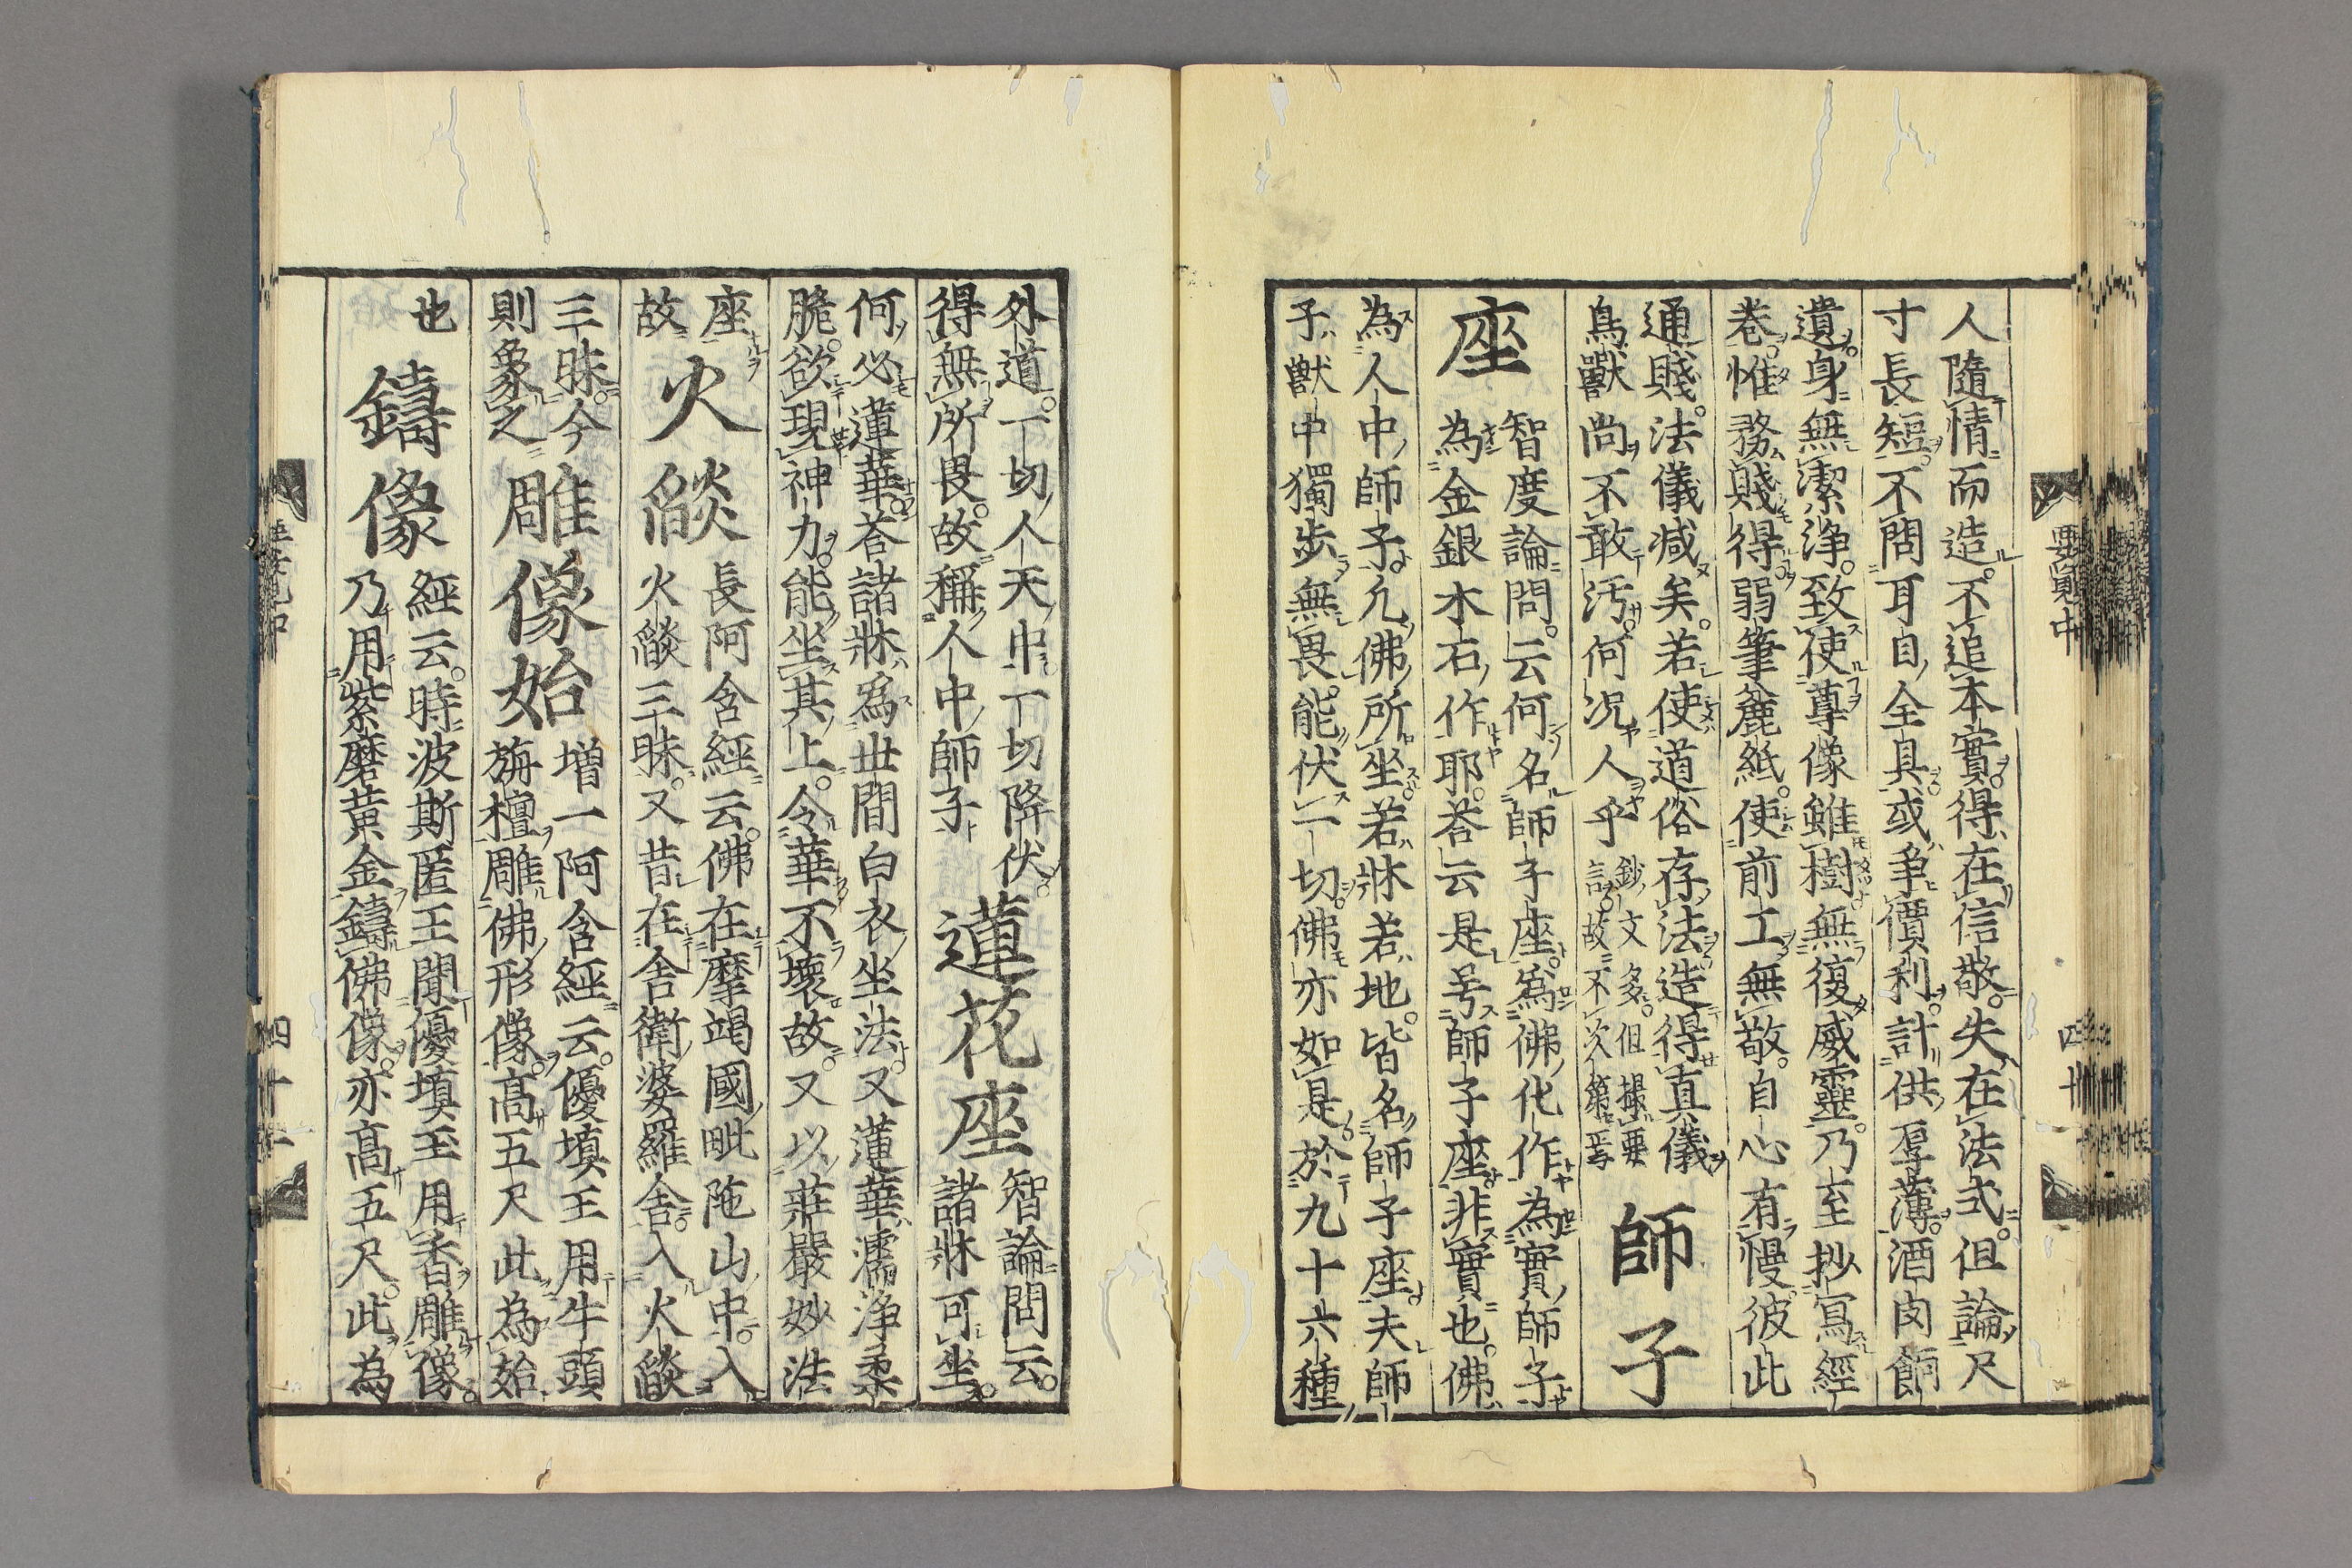 人隨情而造。不追本實。得在信敬。失在法式。但論尺
寸長短。不問耳目全具。或爭價利。計供厚薄。酒肉餉
遺。身無潔淨。致使尊像雖樹無復威靈。乃至抄寫經
卷惟務賤得。弱筆麁紙。使前工無敬。自心有慢。彼此
通賤。法儀減矣。若使道俗存法造得真儀
鳥獸尚不敢汚。何況人乎 鈔文多。但撮要
言。故不次第焉
師子
座 智度論問。云何名師子座。爲佛化作為實師子
為金銀木石作耶。荅云是号師子座非實也。佛
為人中師子。凡佛所坐。若牀若地。皆名師子座。夫師
子獸中獨步無畏。能伏一切。佛亦如是。於九十六種
要覧中
四十
外道。一切人天中一切降伏。 蓮花座 智論問云。
得無所畏。故稱人中師子 諸牀可坐。
何必蓮華。荅諸牀爲世間白衣坐法。又蓮華濡淨柔
脆。欲現神力。能坐其上。令華不壞故。又以莊嚴妙法
座 火燄 長阿含經云。佛在摩竭國毗陁山中。入
故 火燄三昧。又昔在舍衛婆羅舍。入火燄
三昧。今 雕像始 增一阿含經云。優填王用牛頭
則象之 旃檀雕佛形像。高五尺此為始
也 鑄像 經云。時波斯匿王聞優填王用香雕像。
乃用紫磨黃金鑄佛像。亦高五尺。此為
四十一